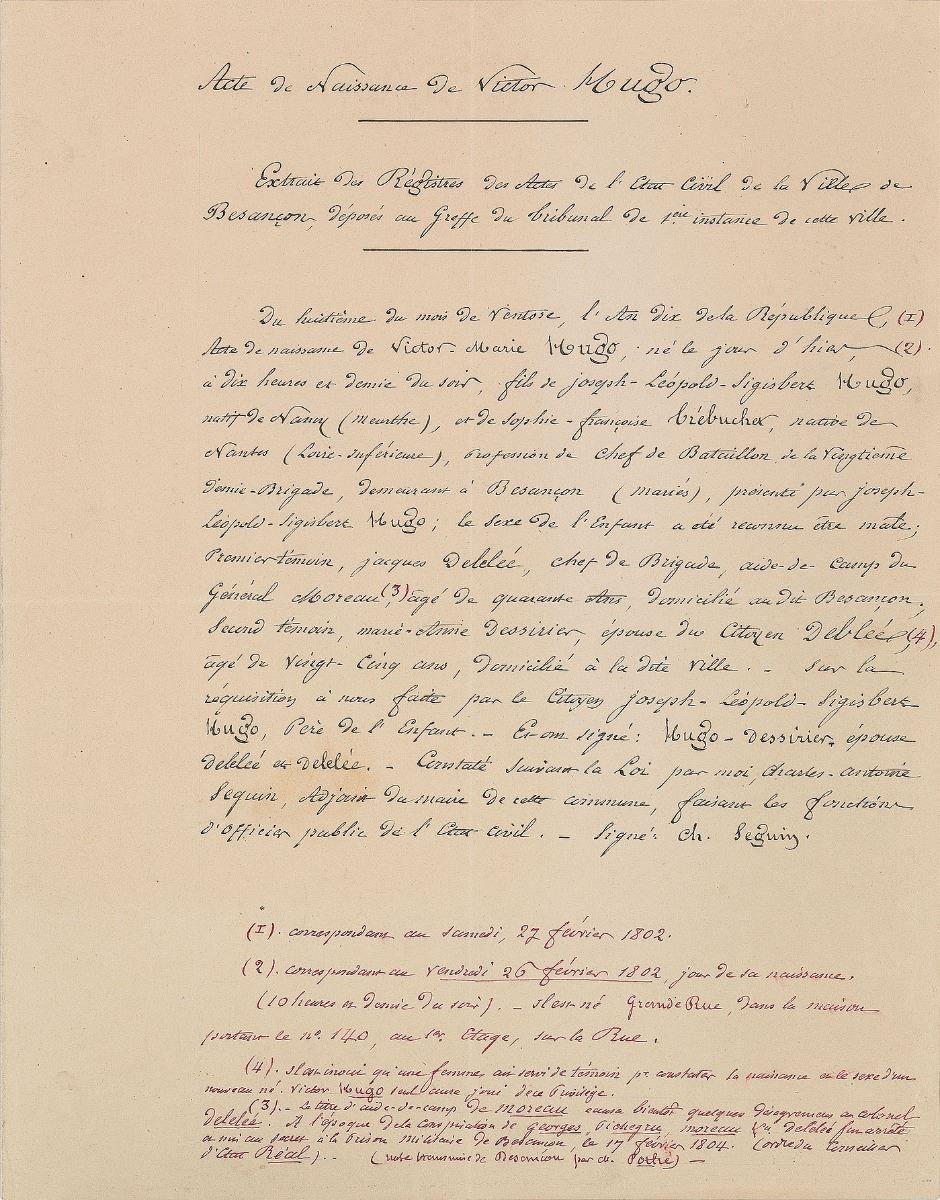 Acte de Naissance de Victor Hugo.
Extrait des Régistres des Actes de l'Etat Civil de la Ville de
Besançon, déposés au Greffe du tribunal de 1ère instance de cette ville.
Du huitième du mois de Ventose, l'An dix de la République, (1)
Acte de naissance de Victor-Marie Hugo, né le jour d'hier, (2).
à dix heures et demie du soir, fils de joseph-Léopold-Sigisbert Hugo,
natif de Nancy (meurthe), et de Sophie-françoise trébuchet, native de
Nantes (Loire-inférieure), profession de Chef de Bataillon de la Vingtième
demie-Brigade, demeurant à Besançon (mariés), présenté par joseph-
Léopold-Sigisbert Hugo; le Sexe de l'Enfant a été reconnu être mâle;
Premier témoin, jacques Delelée, chef de Brigade, aide-de-camp du
Général Moreau, (3) âgé de quarante Ans, domicilié au dit Besançon;
Second témoin, marie-Anne Dessirier, épouse du Citoyen Delelée, (4),
âgé de Vingt-Cinq ans, domicilié à la dite Ville. - Sur la
réquisition à nous faite par le Citoyen joseph-Léopold-Sigisbert
Hugo, Père de l'Enfant. - Et ont signé: Hugo-Dessirier, épouse
Delelée et Delelée. - Constaté suivant la Loi par moi, Charles-antoine
Seguin, Adjoint du maire de cette commune, faisant les fonctions
d'Officier public de l'Etat civil. - Signé: Ch. Seguin.
(1). correspondant au Samedi, 27 février 1802.
(2). correspondant au Vendredi 26 février 1802, jour de sa naissance,
(10 heures et demie du soir). - il est né Grande Rue, dans la maison
portant le n° 140, au 1er Etage, sur la Rue.
(4). il est inouï qu'une femme ait servi de témoin pr constater la naissance et le sexe d'un
nouveau né. Victor Hugo seul aura joui de ce Privilège.
(3). - Le titre d'aide-de-camp de moreau causa bientôt quelques désagréments au colonel
delelée. A l'époque de la Conspiration de georges, Pichegru, moreau delelée fut arrêté
et mis au secret à la Prison Militaire de Besançon, le 17 février 1804. (ordre du Conseiller
d'Etat Réal). - (note transmise de Besançon par M.) -